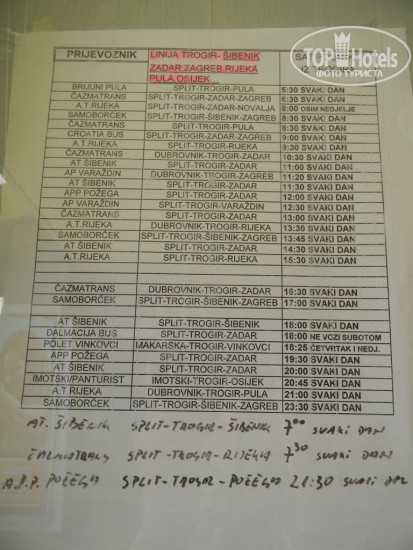 TOP Hotels
ФОТО ТУРИСТА
PRIJEVOZNIK LINIJA TROGIR- ŠIBENIK
ZADAR,ZAGREB,RIJEKA
PULA,OSIJEK
BRIJUNI PULA SPLIT-TROGIR-PULA 5:30 SVAKI DAN
ČAZMATRANS SPLIT-TROGIR-ZADAR-ZAGREB 6:30 SVAKI DAN
A.T.RIJEKA SPLIT-TROGIR-ZADAR-NOVALJA 8:00 OSIM NEDJELJE
SAMOBORČEK SPLIT-TROGIR-ŠIBENIK-ZAGREB 8:30 SVAKI DAN
ČAZMATRANS SPLIT-TROGIR-ZADAR 8:30 SVAKI DAN
CROATIA BUS SPLIT-TROGIR-ZADAR-ZAGREB 9:00 SVAKI DAN
A.T.RIJEKA SPLIT-TROGIR-RIJEKA 9:30 SVAKI DAN
ČAZMATRANS DUBROVNIK-TROGIR-ZADAR 10:30 SVAKI DAN
AT ŠIBENIK SPLIT-TROGIR-ZADAR 11:00 SVAKI DAN
AP VARAŽDIN DUBROVNIK-TROGIR-ZAGREB 11:20 SVAKI DAN
AT ŠIBENIK SPLIT-TROGIR-ZADAR 11:30 SVAKI DAN
APP POŽEGA SPLIT-TROGIR-ZADAR 12:00 SVAKI DAN
AP VARAŽDIN SPLIT-TROGIR-VARAŽDIN 12:30 SVAKI DAN
ČAZMATRANS SPLIT-TROGIR-ZADAR 13:00 SVAKI DAN
A.T.RIJEKA DUBROVNIK-TROGIR-RIJEKA 13:30 SVAKI DAN
SAMOBORČEK SPLIT-TROGIR-ŠIBENIK-ZAGREB 13:45 SVAKI DAN
AT ŠIBENIK SPLIT-TROGIR-ZADAR 14:30 SVAKI DAN
A.T.RIJEKA SPLIT-TROGIR-RIJEKA 15:30 SVAKI DAN
ČAZMATRANS DUBROVNIK-TROGIR-ZADAR 16:30 SVAKI DAN
SAMOBORČEK SPLIT-TROGIR-ŠIBENIK-ZAGREB 17:00 SVAKI DAN
AT ŠIBENIK SPLIT-TROGIR-ŠIBENIK 18:00 SVAKI DAN
DALMACIJA BUS SPLIT-TROGIR-ZADAR 18:00 NE VOZI SUBOTOM
POLET VINKOVCI MAKARSKA-TROGIR-VINKOVCI 18:25 ČETVRTAK I NEDJ.
APP POŽEGA SPLIT-TROGIR-ZADAR 19:30 SVAKI DAN
AT ŠIBENIK SPLIT-TROGIR-ZADAR 20:00 SVAKI DAN
IMOTSKI/PANTURIST IMOTSKI-TROGIR-OSIJEK 20:45 SVAKI DAN
A.T.RIJEKA DUBROVNIK-TROGIR-PULA 21:00 SVAKI DAN
SAMOBORČEK SPLIT-TROGIR-ŠIBENIK-ZAGREB 23:30 SVAKI DAN
AT. ŠIBENIK SPLIT-TROGIR-ŠIBENIK 7 00 SVAKI DAN
ČAZMATRANS SPLIT-TROGIR-RIJEKA 7 30 SVAKI DAN
A.P.P. POŽEGA SPLIT-TROGIR-POŽEGA 21:30 SVAKI DAN